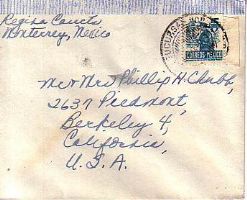 Regina
Monterrey, Mexico
Mr & Mrs Phillip H. Chubb,
2637 Piedmont,
Berkeley 4,
California,
U.S.A.
CORREOS MEXICO